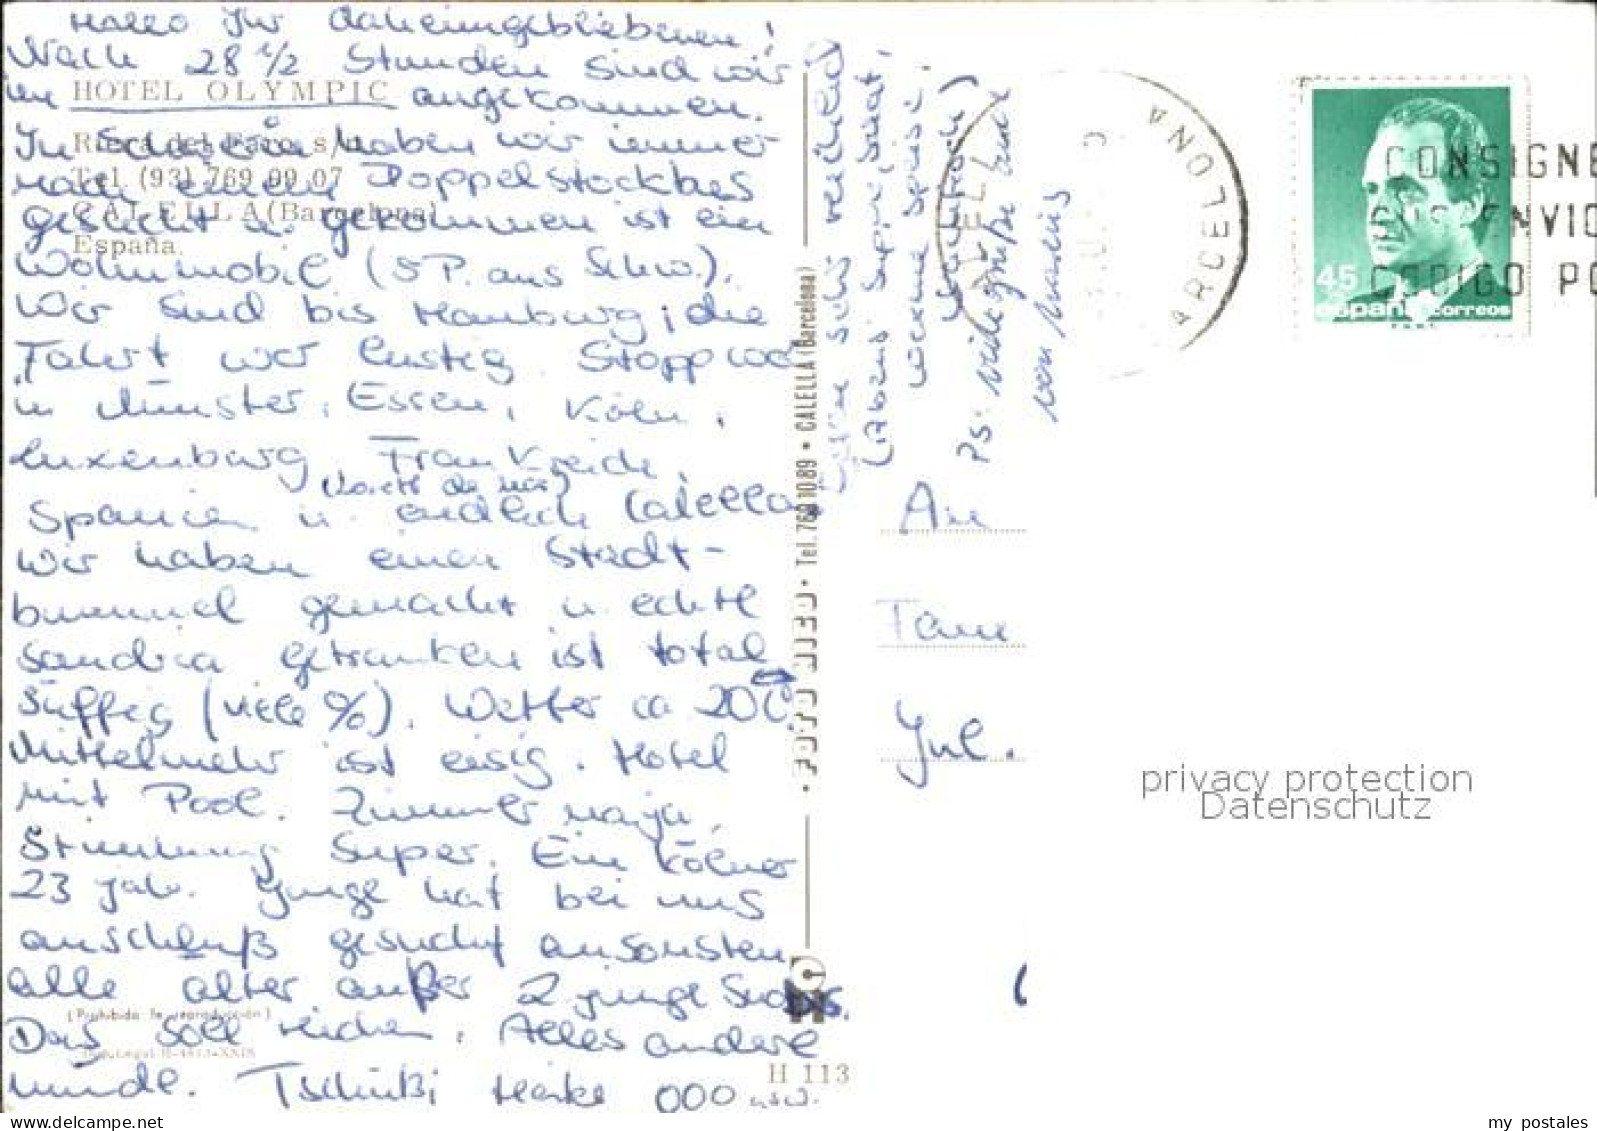 Hallo Ihr daheimgebliebenen!
Nach 28 1/2 Stunden sind wir
im HOTEL OLYMPIC angekommen.
Riera del Faro, s/n
In Schwerin haben wir immer
Tel. (93) 769 09 07
nach einem Doppelstockbus
CALELLA (Barcelona)
gesucht u. gekommen ist ein
España.
Wohnmobil (5 P. aus Schw.).
Wir sind bis Hamburg; die
Fahrt war lustig. Stopp war
in Münster, Essen, Köln,
Luxenburg, Frankreich,
Spanien u. endlich Calella
Wir haben einen Stadt-
bummel gemacht u. echte
Sandria getrunken ist total
süffig (viele %). Wetter ca 20C.
Mittelmehr ist eisig. Hotel
mit Pool. Zimmer naja,
Stimmung super. Ein Kölner
23 jah. Junge hat bei uns
anschluß gesucht ansonsten
alle älter außer 2 junge
(Prohibida la reproducción)
Das soll reichen. Alles andere
mündl. Tschüßi Heike 000 usw.
H 113
Essen sehr reichlich
(Abens Suppe, Salat,
warme Speise.
Nachtisch)
Ps: viele grüße auch
von
FOTO JUBO · Tel. 769 10 89 · CALELLA (Barcelona)
An
Fam
Jul.
BARCELONA
CONSIGNE
ENVIO
CODIGO PO
45
España correos
privacy protection
Datenschutz
my postales